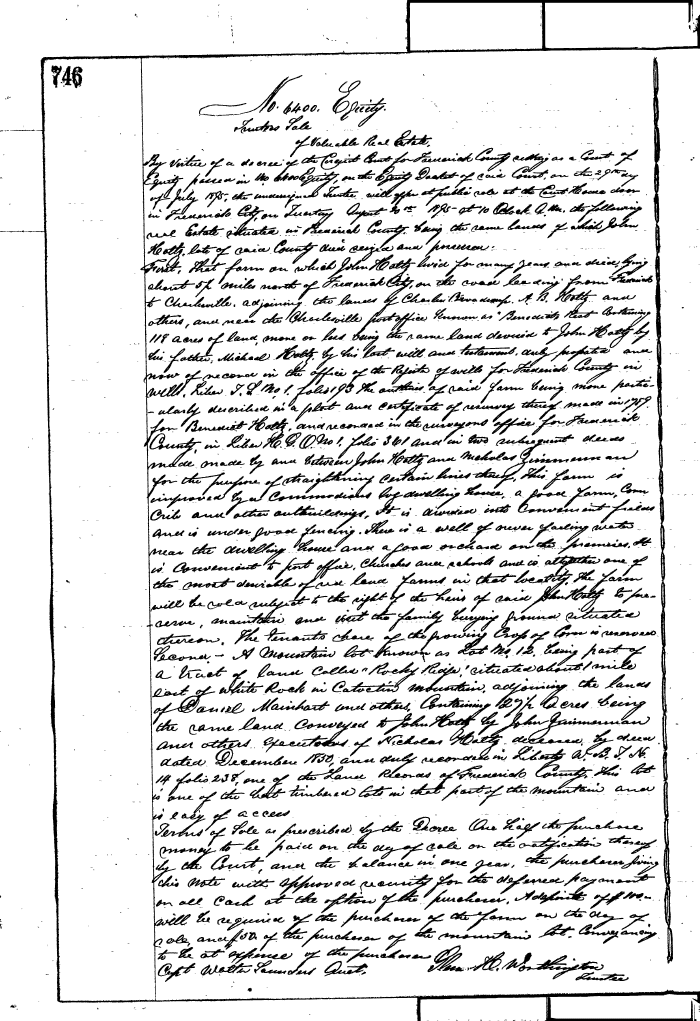 746
No. 6400. Equity.
Trustees Sale
of Valuable Real Estate.
By virtue of a decree of the Circuit Court for Frederick County sitting as a Court of
Equity passed in No. 6400 Equity, on the Equity Docket of said Court, on the 29th day
of July 1895, the undersigned Trustee, will offer at public sale at the Court House door
in Frederick City, on Tuesday August 20th 1895 at 10 O'clock A.M., the following
real Estate situated in Frederick County being the same lands of which John
Holtz, late of said County died seized and possessed.
First, That farm on which John Holtz lived for many years and died, lying
about 5½ miles north of Frederick City, on the road leading from Frederick
to Charlesville, adjoining the lands of Charles A. B. Holtz and
others, and near the Charlesville post office known as "Benedicts Rest Containing
118 acres of land, more or less being the same land devised to John Holtz by
his father, Michael Holtz by his last will and testament, duly probated and
now of record in the office of the Register of wills for Frederick County in
Wills, Liber T. S. No 1. folio 193 The outlines of said farm being more partic-
-ularly described in a plat and certificate of resurvey thereof made in 1759
for Benedict Holtz, and recorded in the surveyors office for Frederick
County, in Liber H. G. O. No 1, folio 361 and in two subsequent deeds
made made by and between John Holtz and Nicholas Zimmerman
for the purpose of straightening certain lines thereof, This farm is
improved by a Commodious log dwelling house, a good farm, Corn
Crib and other outbuildings, It is divided into Convenient fields
and is under good fencing. There is a well of never failing water
near the dwelling house and a good orchard on the premises. It
is Convenient to post office, Churches and schools and is altogether one of
the most desirable of red land farms in that locality, The farm
will be sold subject to the right of the heirs of said John Holtz to pre-
-serve, maintain and visit the family burying ground situated
thereon. The tenants share of the growing Crop of Corn is reserved
Second, - A Mountain lot known as Lot No. 12, being part of
a tract of land called "Rocky Ridge", situated about 1 mile
east of White Rock in Catoctin Mountain, adjoining the lands
of Daniel Mainhart and others, Containing 12 7/8 Acres being
the same land Conveyed to John Holtz by John Zimmerman
and others executors of Nicholas Holtz deceased, by deed
dated December 1850, and duly recorded in Liber W. B. T. No.
14 folio 238, one of the Land Records of Frederick County, This lot
is one of the best timbered lots in that part of the mountain and
is easy of access
Terms of Sale as prescribed by the Decree One half the purchase
money to be paid on the day of sale on the ratification thereof
by the Court, and the balance in one year, the purchaser giving
his note with approved security for the deferred payment
or all Cash at the option of the purchaser. A deposit of $100-
will be required of the purchaser of the farm on the day of
sale, and $50 of the purchaser of the mountain lot. Conveyancing
to be at expense of the purchaser
Capt Walter Saunders Auct. H. Worthington
Trustee